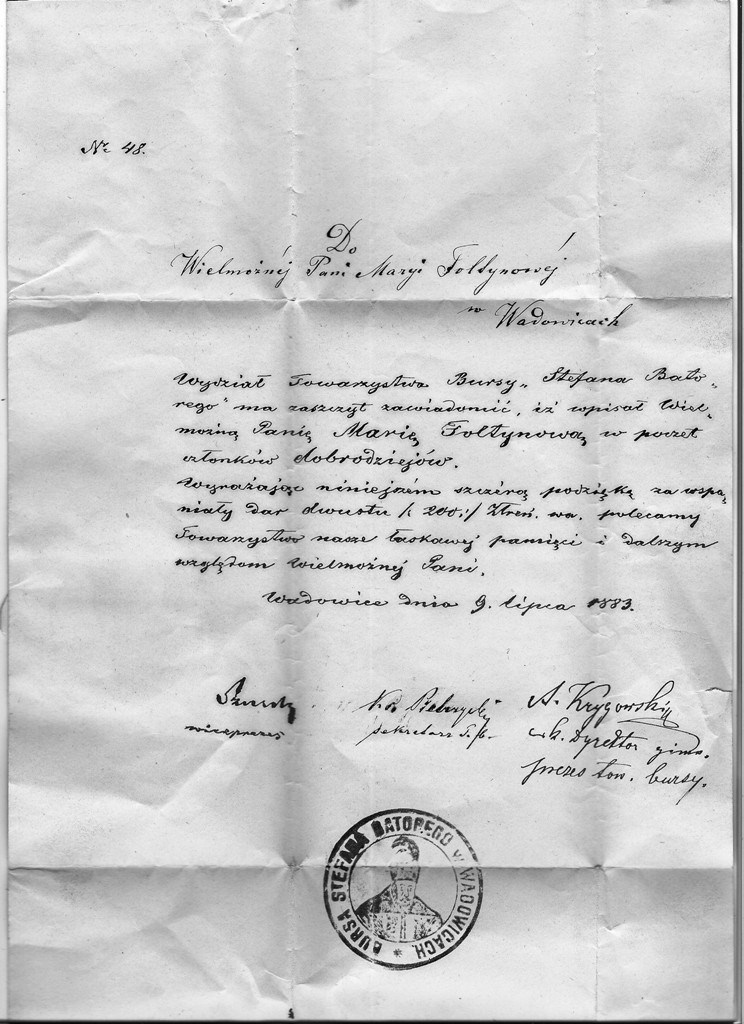 Nr 48.
Do
Wielmożnéj Pani Maryi Fołtynowéj
w Wadowicach
Wydział Towarzystwa Bursy „Stefana Bato-
rego" ma zaszczyt zawiadomić, iż wpisał Wiel-
możną Panię Marię Fołtynową w poczet
członków dobrodziejów.
Wyrażając niniejszém szczérą podziękę za wspa-
niały dar dwustu /:200:/ Złreń. wa. polecamy
Towarzystwo nasze łaskawej pamięci i dalszym
względom Wielmożnej Pani.
Wadowice dnia 9. lipca 1883.
wiceprezes
sekretarz T. b.
A. Krygowski
c. k. Dyrektor gimn.
prezes tow. bursy.
BURSA STEFANA BATOREGO W WADOWICACH *